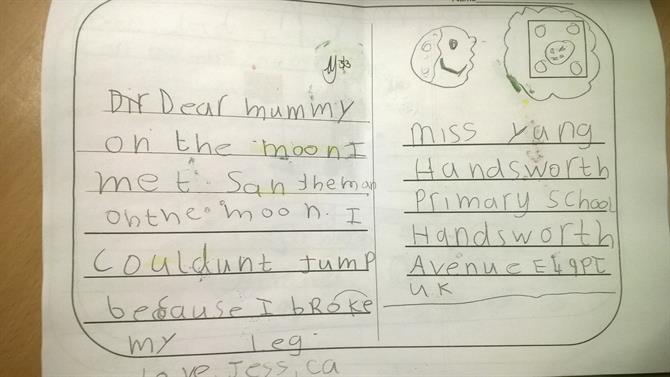 Name
Dear mummy
on the moon I
met San the man
on the moon. I
Couldunt jump
because I bRoke
my leg.
Love Jessica
miss yang
Handsworth
Primary School
Handsworth
Avenue E49PI
UK